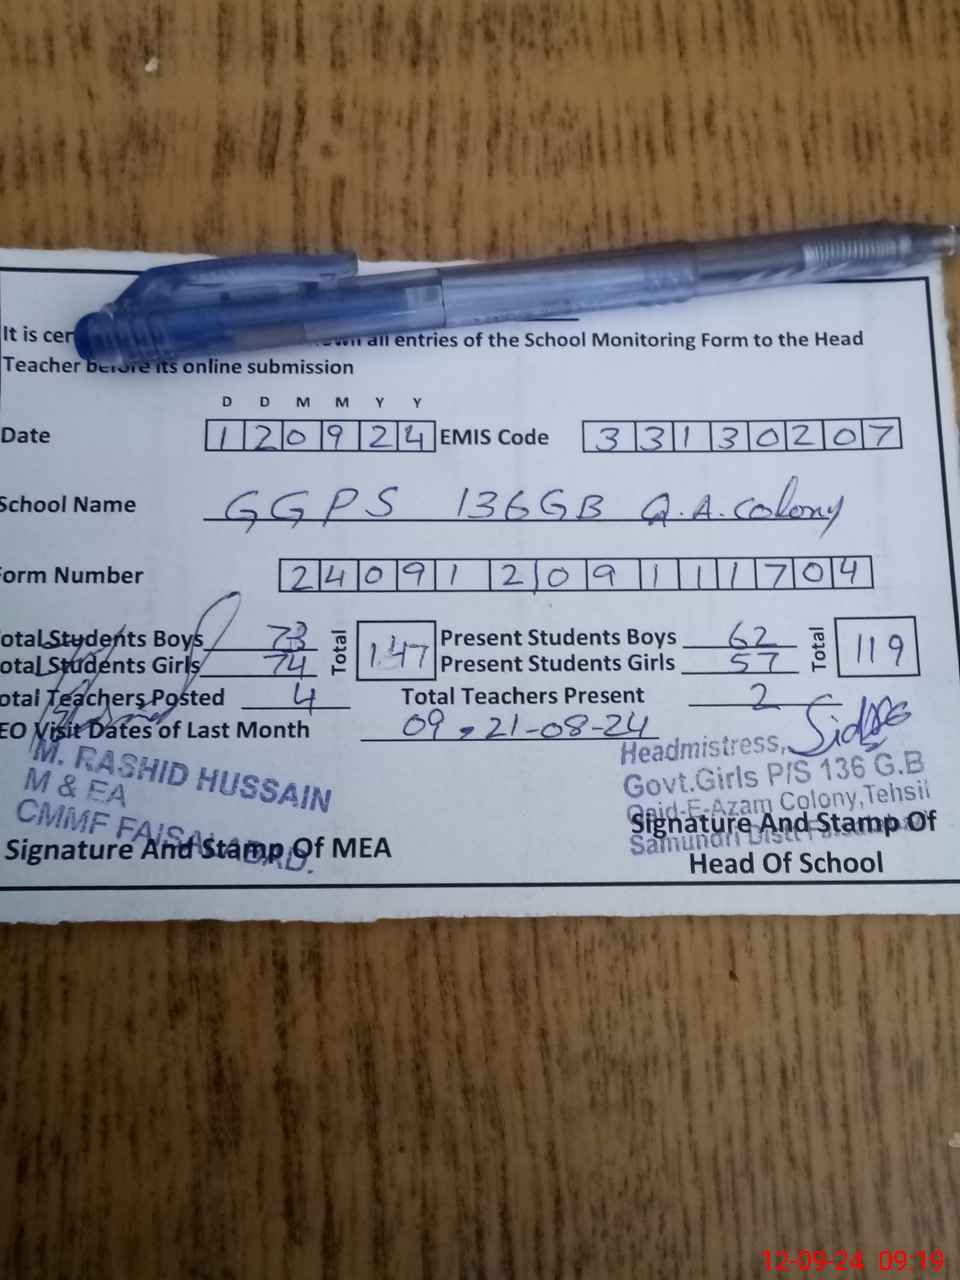 It is cer all entries of the School Monitoring Form to the Head
Teacher before its online submission
D D M M Y Y
Date 120924 EMIS Code 33130207
School Name GGPS 136GB Q.A. Colony
Form Number 24091209111704
Total Students Boys 73 Total 147 Present Students Boys 62 Total 119
Total Students Girls 74 Present Students Girls 57
Total Teachers Posted 4 Total Teachers Present 2
EO Visit Dates of Last Month 09, 21-08-24
M. RASHID HUSSAIN
M & EA
CMMF FAISALABAD.
Signature And Stamp Of MEA
Headmistress,
Govt.Girls P/S 136 G.B
Qaid-E-Azam Colony,Tehsil
Samundri Distt
Signature And Stamp Of
Head Of School
12-09-24 09:19